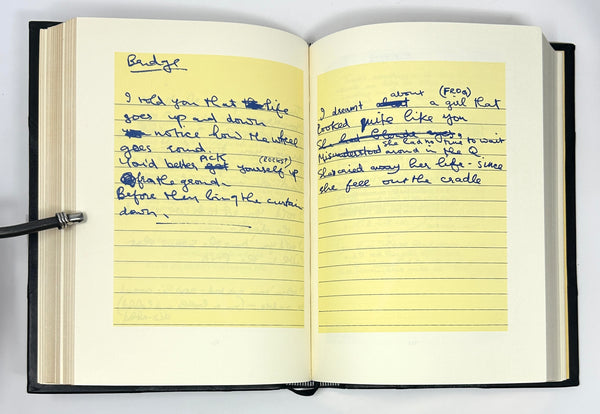 Bridge
I told you that the life
goes up and down
notice how the wheel
goes round
PICK (ROCKST)
You'd better get yourself up
from the ground
Before they bring the curtain
down.
about (FROG)
I dreamt about a girl that
looked quite like you
She had blonde eyes. She had no time to wait
Misunderstood around in the Q
She cried away her life - since
she fell out the cradle